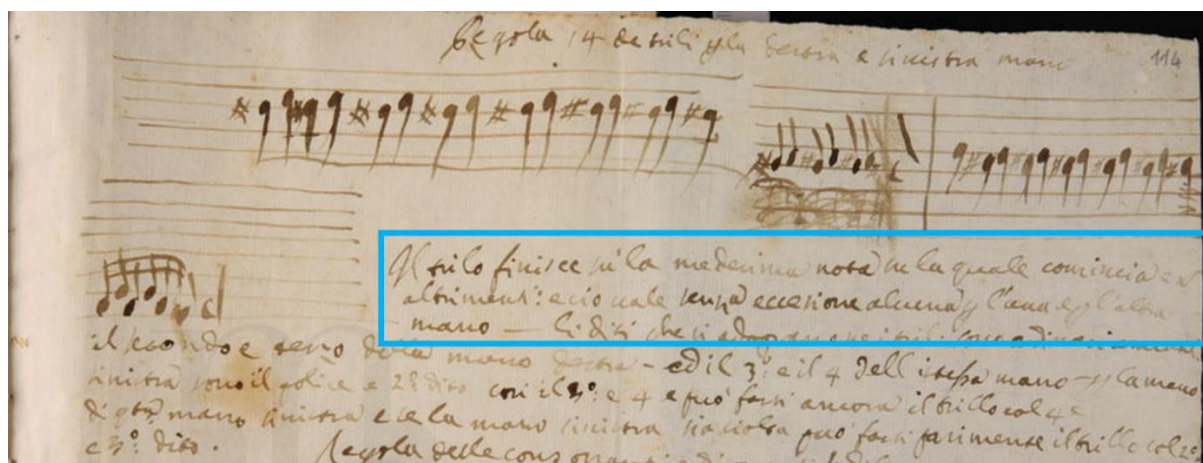 Regola 14 de trili p la destra e sinistra mano
114
Il trilo finisce in la medesima nota in la quale comincia e n
altrimenti: e cio vale senza eccezione alcuna p l'una e p l'altra
mano — li diti che si adoprano ne i trili sono ordinariamente
il secondo e terzo della mano destra — ed il 3º: e il 4 dell istessa mano — p la mano
sinistra sono il police e 2º dito con il 3º: e 4 e può farsi ancora il trillo col 4 e
di qta mano sinistra e se la mano sinistra sia sciolta può farsi parimente il trillo col 2º
e 3º: dito.
Regola delle consonanti e